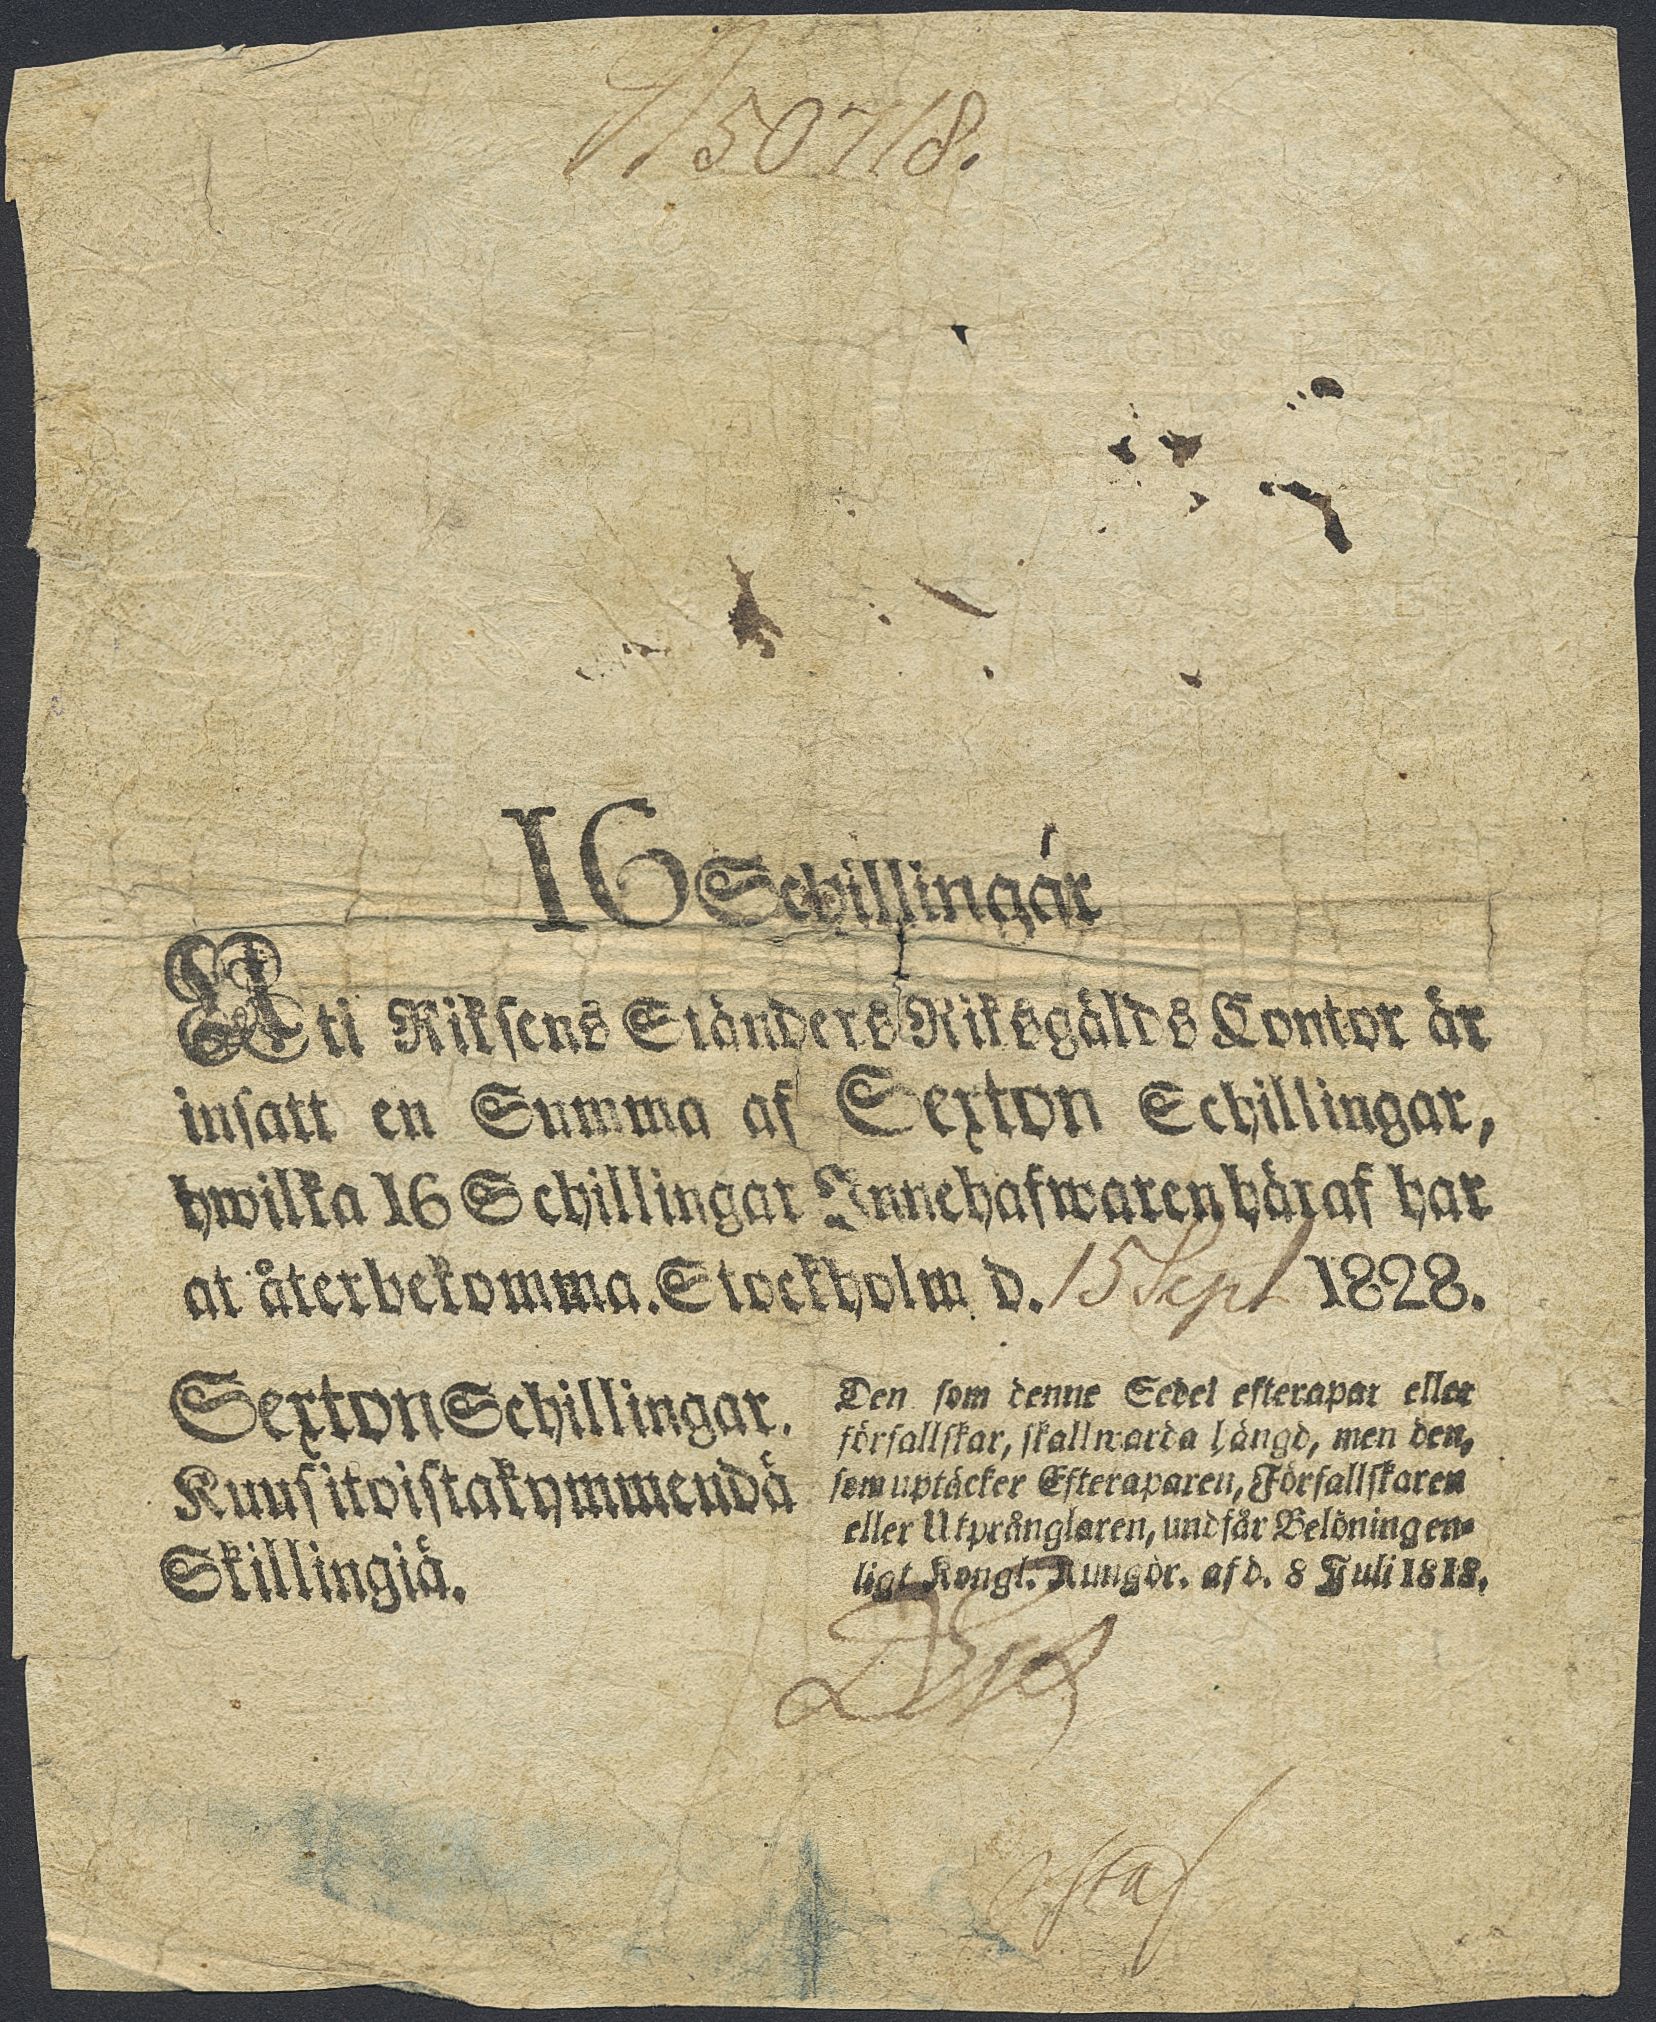 50718.
16 Schillingar
Uti Riksens Ständers Riksgälds Contor är
insatt en Summa af Sexton Schillingar,
hwilka 16 Schillingar Innehafwaren häraf har
at återbekomma. Stockholm d. 15 Sept 1828.
Sexton Schillingar.
Kuusitoistakymmendä
Skillingiä.
Den som denne Sedel efterapar eller
förfallskar, skall warda hängd, men den,
som uptäcker Efteraparen, Förfallskaren
eller Utprånglaren, undfår Belöning en-
ligt Kongl. Kungör. af d. 8 Juli 1818.